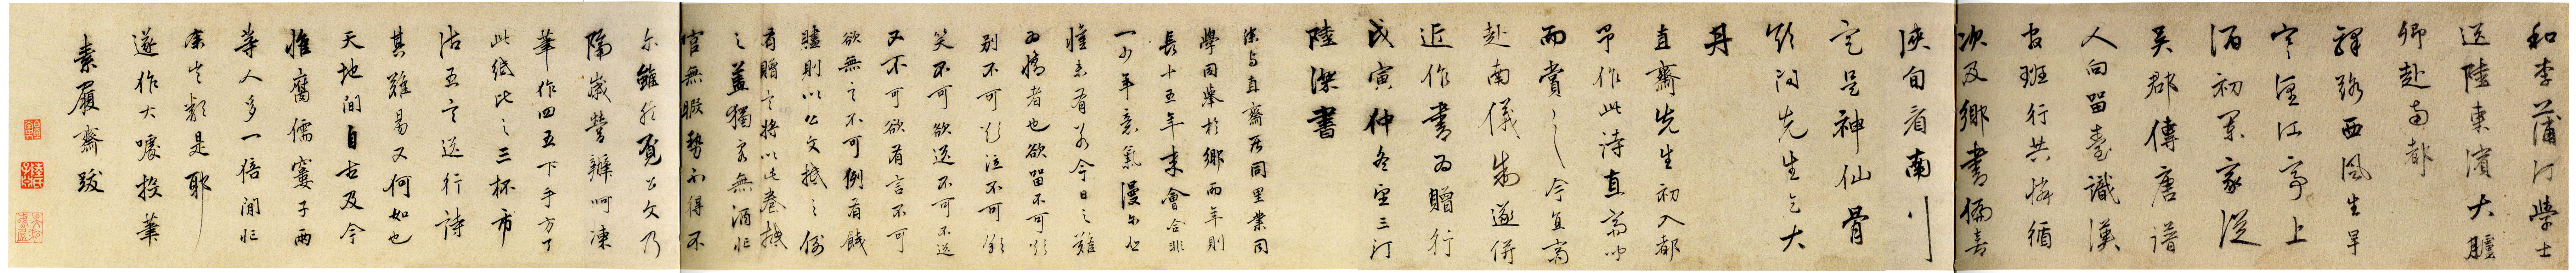 和李蒲汀學士
送陸東濱大臚
卿赴南都
驛路西風生早
寒潞江亭上
酒初闌家從
吳郡傳唐譜
人向留臺識漢
官班行共憐循
次及鄉書偏喜
浹旬看南川
定是神仙骨
頻問先生乞大
丹
直齋先生初入都
予作此詩直齋口
而賞之今直齋
赴南儀制遂併
近作書為贈行
戊寅仲冬望三汀
陸深書
深與直齋居同里業同
學同舉於鄉而年則
長十五年來會合非
一少年意氣漫尔也
惟未有若今日之難
為情者也欲留不可
別不可欲泣不可欲
笑不可欲送不可不送
又不可欲有言不可
欲無言不可例有餞
贐則以公文抵之例
有贈言將以此卷抵
之蓋獨客無酒
官無暇勢不得不
尔雖然覓公文乃
隔歲營辦呵凍
筆作四五下手方了
此紙比之三杯市
沽五言送行詩
其難易又何如也
天地間自古及今
惟腐儒窶子兩
等人多一倍閒忙
余豈類是耶
遂作大噱投筆
素履齋跋